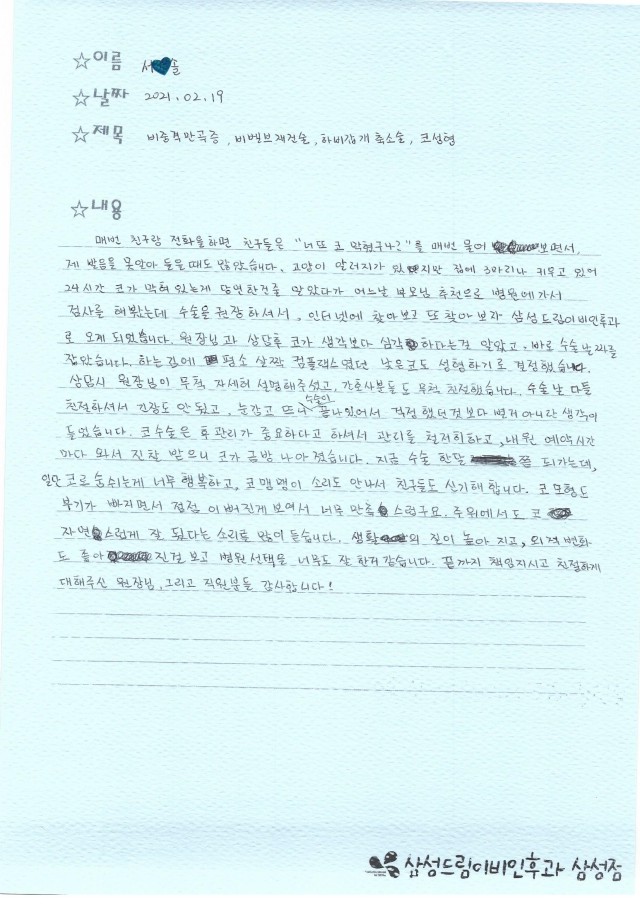 ☆이름 서♥솔
☆날짜 2021.02.19
☆제목 비중격만곡증, 비밸브재건술, 하비갑개축소술, 코성형
☆내용
매번 친구랑 전화을하면 친구들은 "너또 코막혔구나?"를 매번 물어 보면서,
제 발음을 못알아 들을때도 많았습니다. 고양이 알러지가 있지만 집에 3마리나 키우고 있어
24시간 코가 막혀있는게 당연한건줄 알았다가 어느날 부모님 추천으로 병원에가서
검사를 해봤는데 수술을 권장하셔서, 인터넷에 찾아보고 또 찾아보자 삼성드림이비인후과
로 오게 되었습니다. 원장님과 상담후 코가 생각보다 심각하다는걸 알았고, 바로 수술날짜를
잡았습니다. 하는김에 평소 살짝 컴플랙스였던 낮은코도 성형하기로 결정했습니다.
상담시 원장님이 무척 자세히 설명해주셨고, 간호사분들도 무척 친절했습니다. 수술날 다들
친절하셔서 긴장도 안됬고, 눈감고 뜨니 수술이 끝나있어서 걱정했던것보다 별거아니란 생각이
들었습니다. 코수술은 후관리가 중요하다고 하셔서 관리를 철저히하고, 내원 예약시간
마다 와서 진찰 받으니 코가 금방 나아졌습니다. 지금 수술 한달 쯤 되가는데,
일단 코로 숨쉬는게 너무 행복하고, 코맹맹이 소리도 안나서 친구들도 신기해합니다. 코모형도
부기가 빠지면서 점점 이뻐진게 보여서 너무 만족스럽구요. 주위에서도 코
자연스럽게 잘 됬다는 소리로 많이 듣습니다. 생활의 질이 높아지고, 외적변화
도 좋아진걸 보고 병원선택을 너무도 잘한거같습니다. 끝까지 책임지시고 친절하게
대해주신 원장님, 그리고 직원분들 감사합니다!
삼성드림이비인후과 삼성점